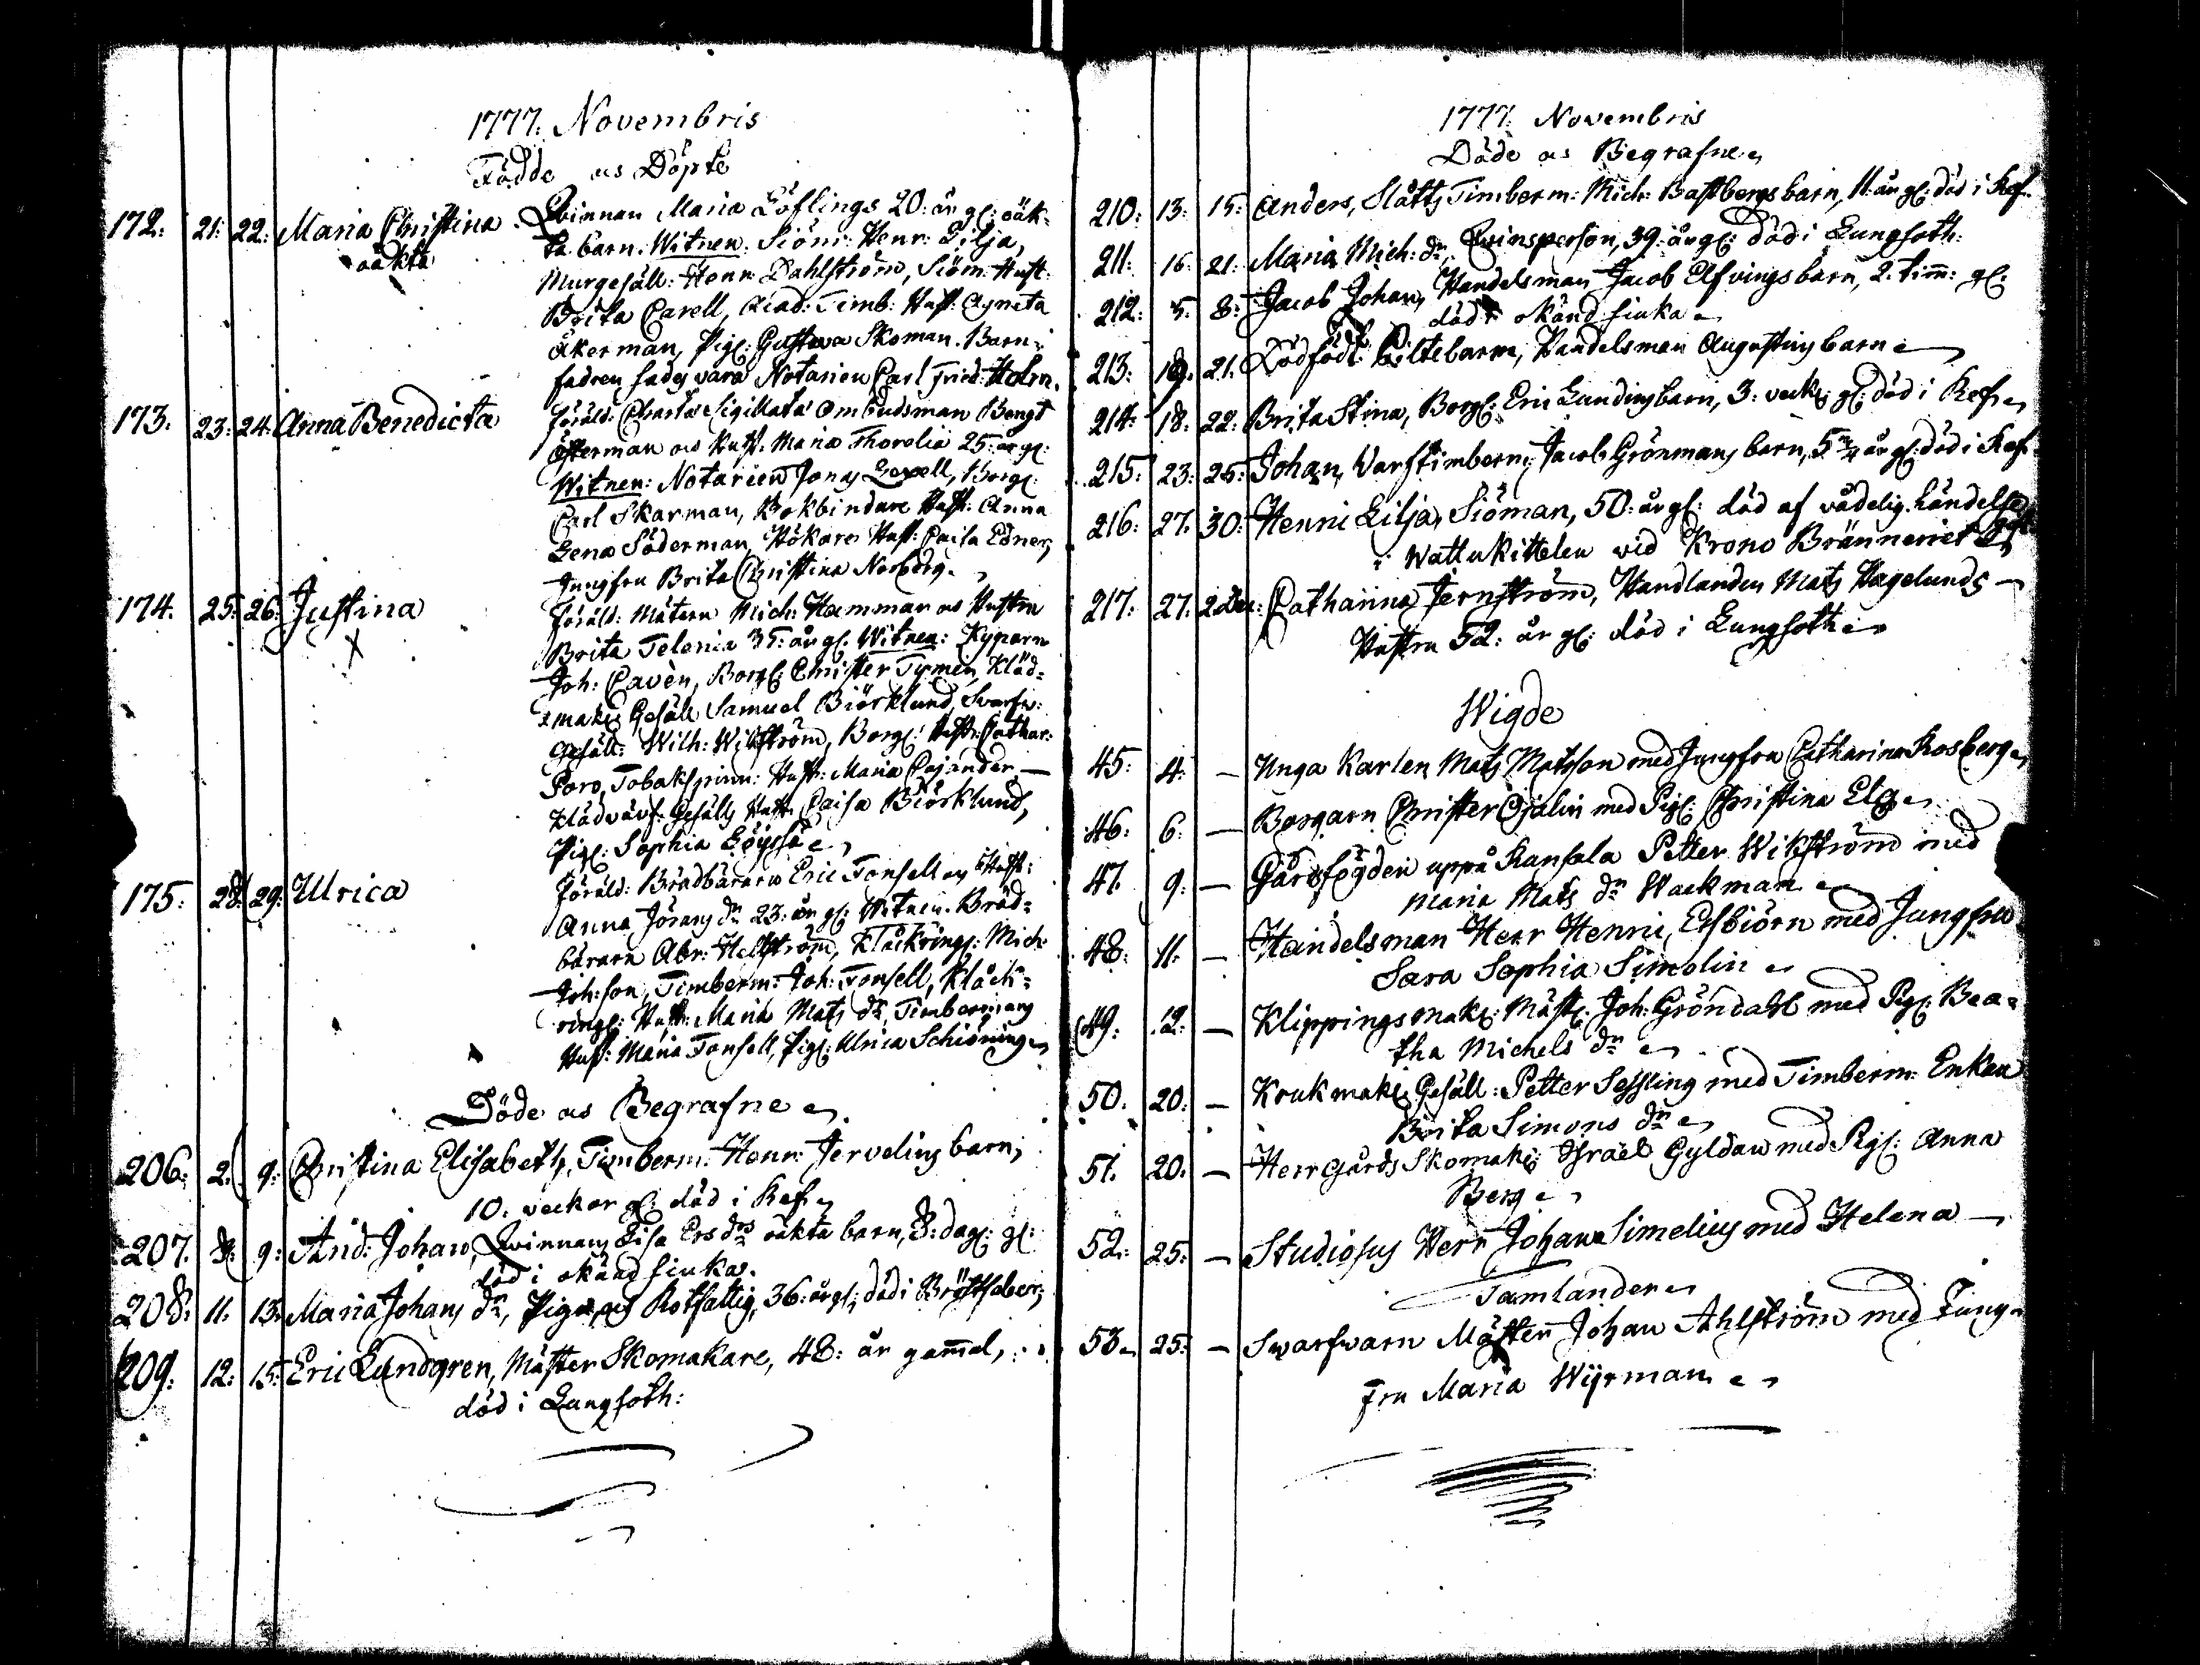 1777. Novembris
Födde och Döpte
172. 21. 22. Maria Christina Qvinnan Maria Löflings 20: år gl: oäk-
oäkta ta barn. Witnen. Siöm: Henr: Lilja,
Murgesäll: Henr: Dahlström, Siöm: Hust:
Brita Carell, Acad: Timb: Hust: Agneta
Åkerman, Pig: Gustava Skoman. Barn-
fadren sades vara Notarien Carl Fried: Holm.
173. 23: 24: Anna Benedicta Föräld: Charta Sigillatæ Ombudsman Bengt
Österman och Hust: Maria Thorelia 25: år gl:
Witnen: Notarien Jonas Lexell, Borg:
Carl Skarman, Bokbindare Hust: Anna
Lena Söderman, Hökare Hust: Caisa Edner,
Jungfru Brita Christina Nordbg.
174. 25: 26: Justina Föräld: Mätern Mich: Hammar och Hustru
Brita Telenia 35: år gl. Witnen: Kyparn
Joh: Cavèn, Borg: Christer Tymen, Kläd-
mak: Gesäll Samuel Biörklund, Svarfv:
Gesäll: Wilh: Wikström, Borg: Hustr: Cathar:
Poro, Tobakspinn: Hust: Maria Cajander
Klädväf: Gesälls Hust: Caisa Biörklund,
Pig: Sophia Löyssä
175. 28. 29. Ulrica Föräld: Brödbärarn Eric Tonsell och Hust:
Anna Jörans dr 23: år gl: Witnen. Bröd-
bärarn Abr: Hellström, Klåckring: Mich:
Joh:son, Timberm: Joh: Tonsell, Klåck-
ring: Hust: Maria Mats dr, Timbermans
Hust: Maria Tonsell, Pig: Ulrica Schiöning
Döde och Begrafne
206. 2. 9. Christina Elisabeth, Timberm: Henr: Jervelins barn,
10. veckor gl: död i Kef.
207. 8. 9. And: Johan, Qvinnans Lisa Ers drs oäkta barn, 8: dag: gl:
död i okänd siuka.
208. 11. 13. Maria Johans dr, Piga och Rotfattig, 36: år gl; död i Bröstfeber;
209. 12. 15: Eric Lundgren, Mäster Skomakare, 48: år gammal,
död i Lungsoth:
1777. Novembris
Döde och Begrafne
210: 13: 15: Anders, Slåtts Timberm: Mich: Bastbergs barn, 11: år gl: död i Kef.
211: 16: 21: Maria Mich: dr, Qvinsperson, 39: år gl: död i Lungsoth:
212: 5. 8: Jacob Johan, Handelsman Jacob Elfvings barn, 2: tim: gl:
död i okänd siuka
213: 19. 21: Dödfödt Giltebarn, Handelsman Augustins barn
214: 18: 22: Brita Stina, Borg: Eric Lundins barn, 3: veck: gl: död i Kef.
215: 23: 25: Johan, Varfstimberm: Jacob Grönmans barn, år gl: död i Kef.
216: 27. 30: Henric Lilja, Siöman, 50: år gl: död af vådelig händelse
i Wattukittelen vid Krono Bränneriet
217: 27. Catharina Jernström, Handlanden Mats Hagelunds
Hustru 52: år gl: död i Lungsoth
Wigde
45: 4: — Unga Karlen Mats Matsson med Jungfru Catharina Rosberg
46: 6: — Borgarn Christer Cajalin med Pig: Christina Elg
47. 9: — Gårdsfogden uppå Kansala Petter Wikström med
Maria Mats dr Wackman
48: 11. — Handelsman Herr Henric Esbiörn med Jungfru
Sara Sophia Simolin
49: 12: — Klippingsmak: Mäst: Joh: Gröndahl med Pig: Bea-
tha Michels dr
50. 20: — Krukmak: Gesäll: Petter Sessling med Timberm: Enkan
Brita Simons dr
51. 20: — Herrgårds Skomak: Israel Gyldan med Pig: Anna
Berg
52: 25: — Studiosus Herr Johan Simelius med Helena —
Tamlander
53. 25: — Svarfvarn Mästern Johan Ahlström med Jung-
fru Maria Wijrman